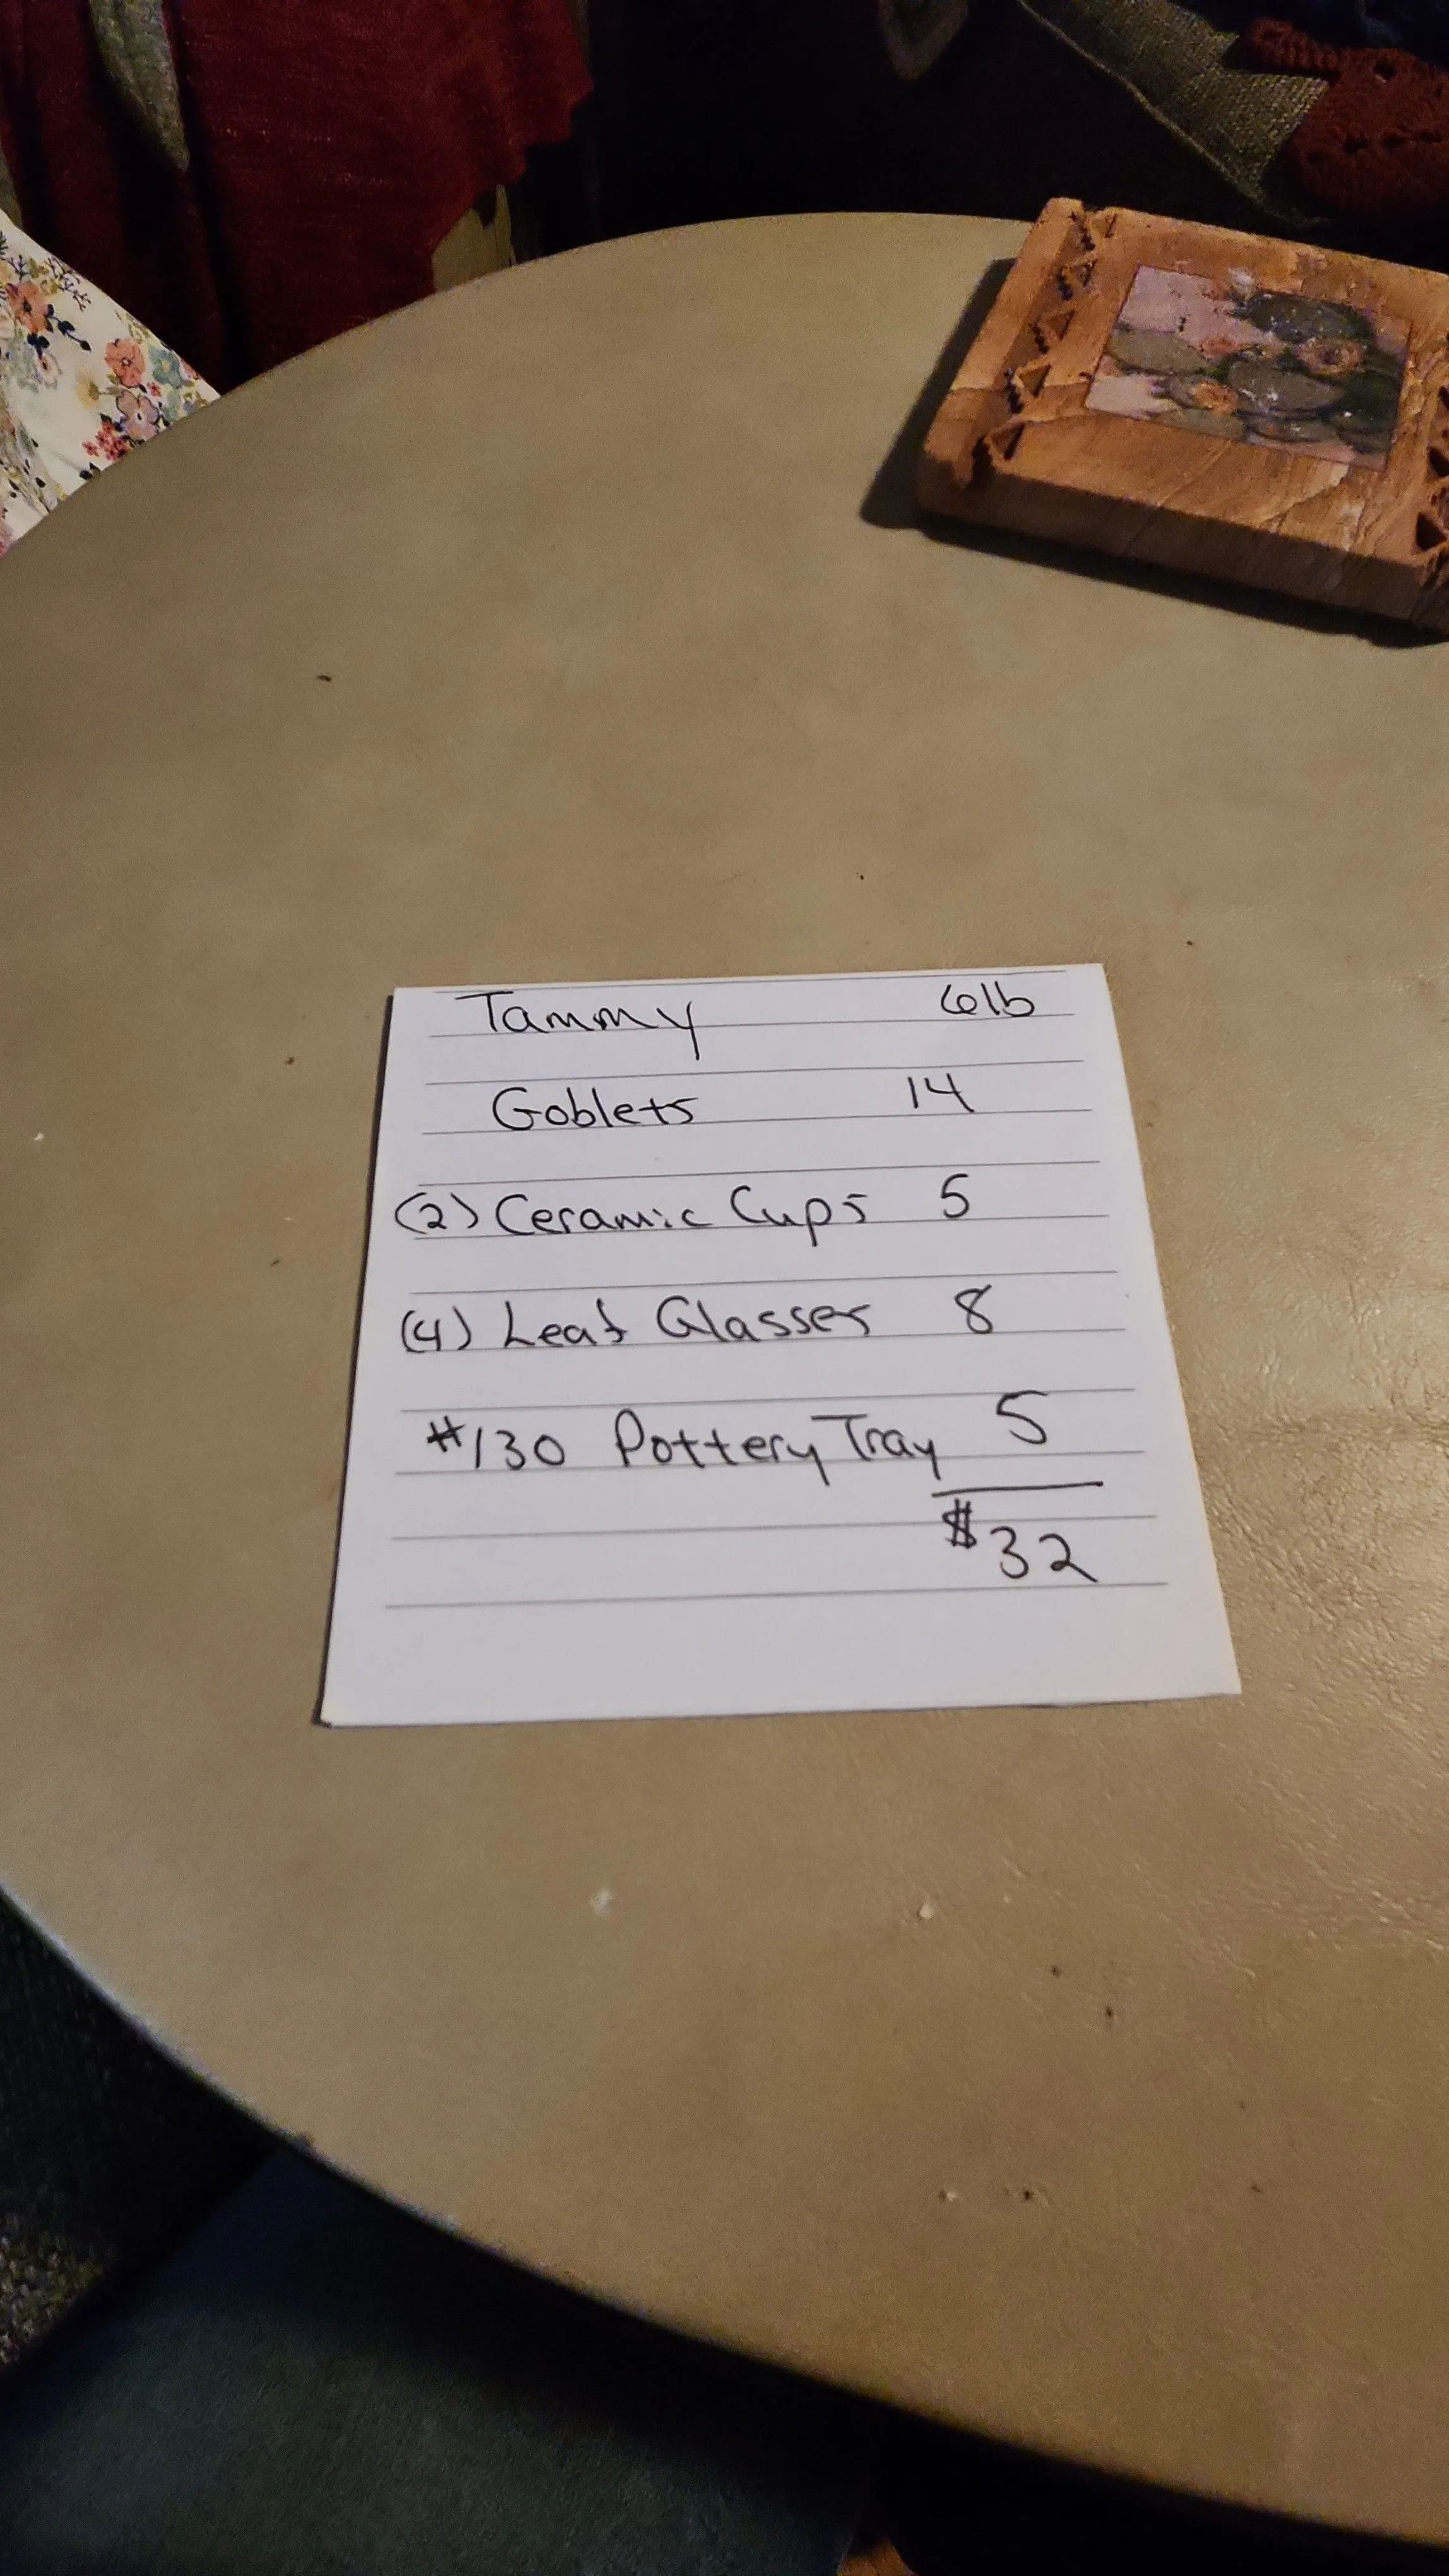 Tammy 6lb
Goblets 14
(2) Ceramic Cups 5
(4) Leaf Glasses 8
#130 Pottery Tray 5
$32